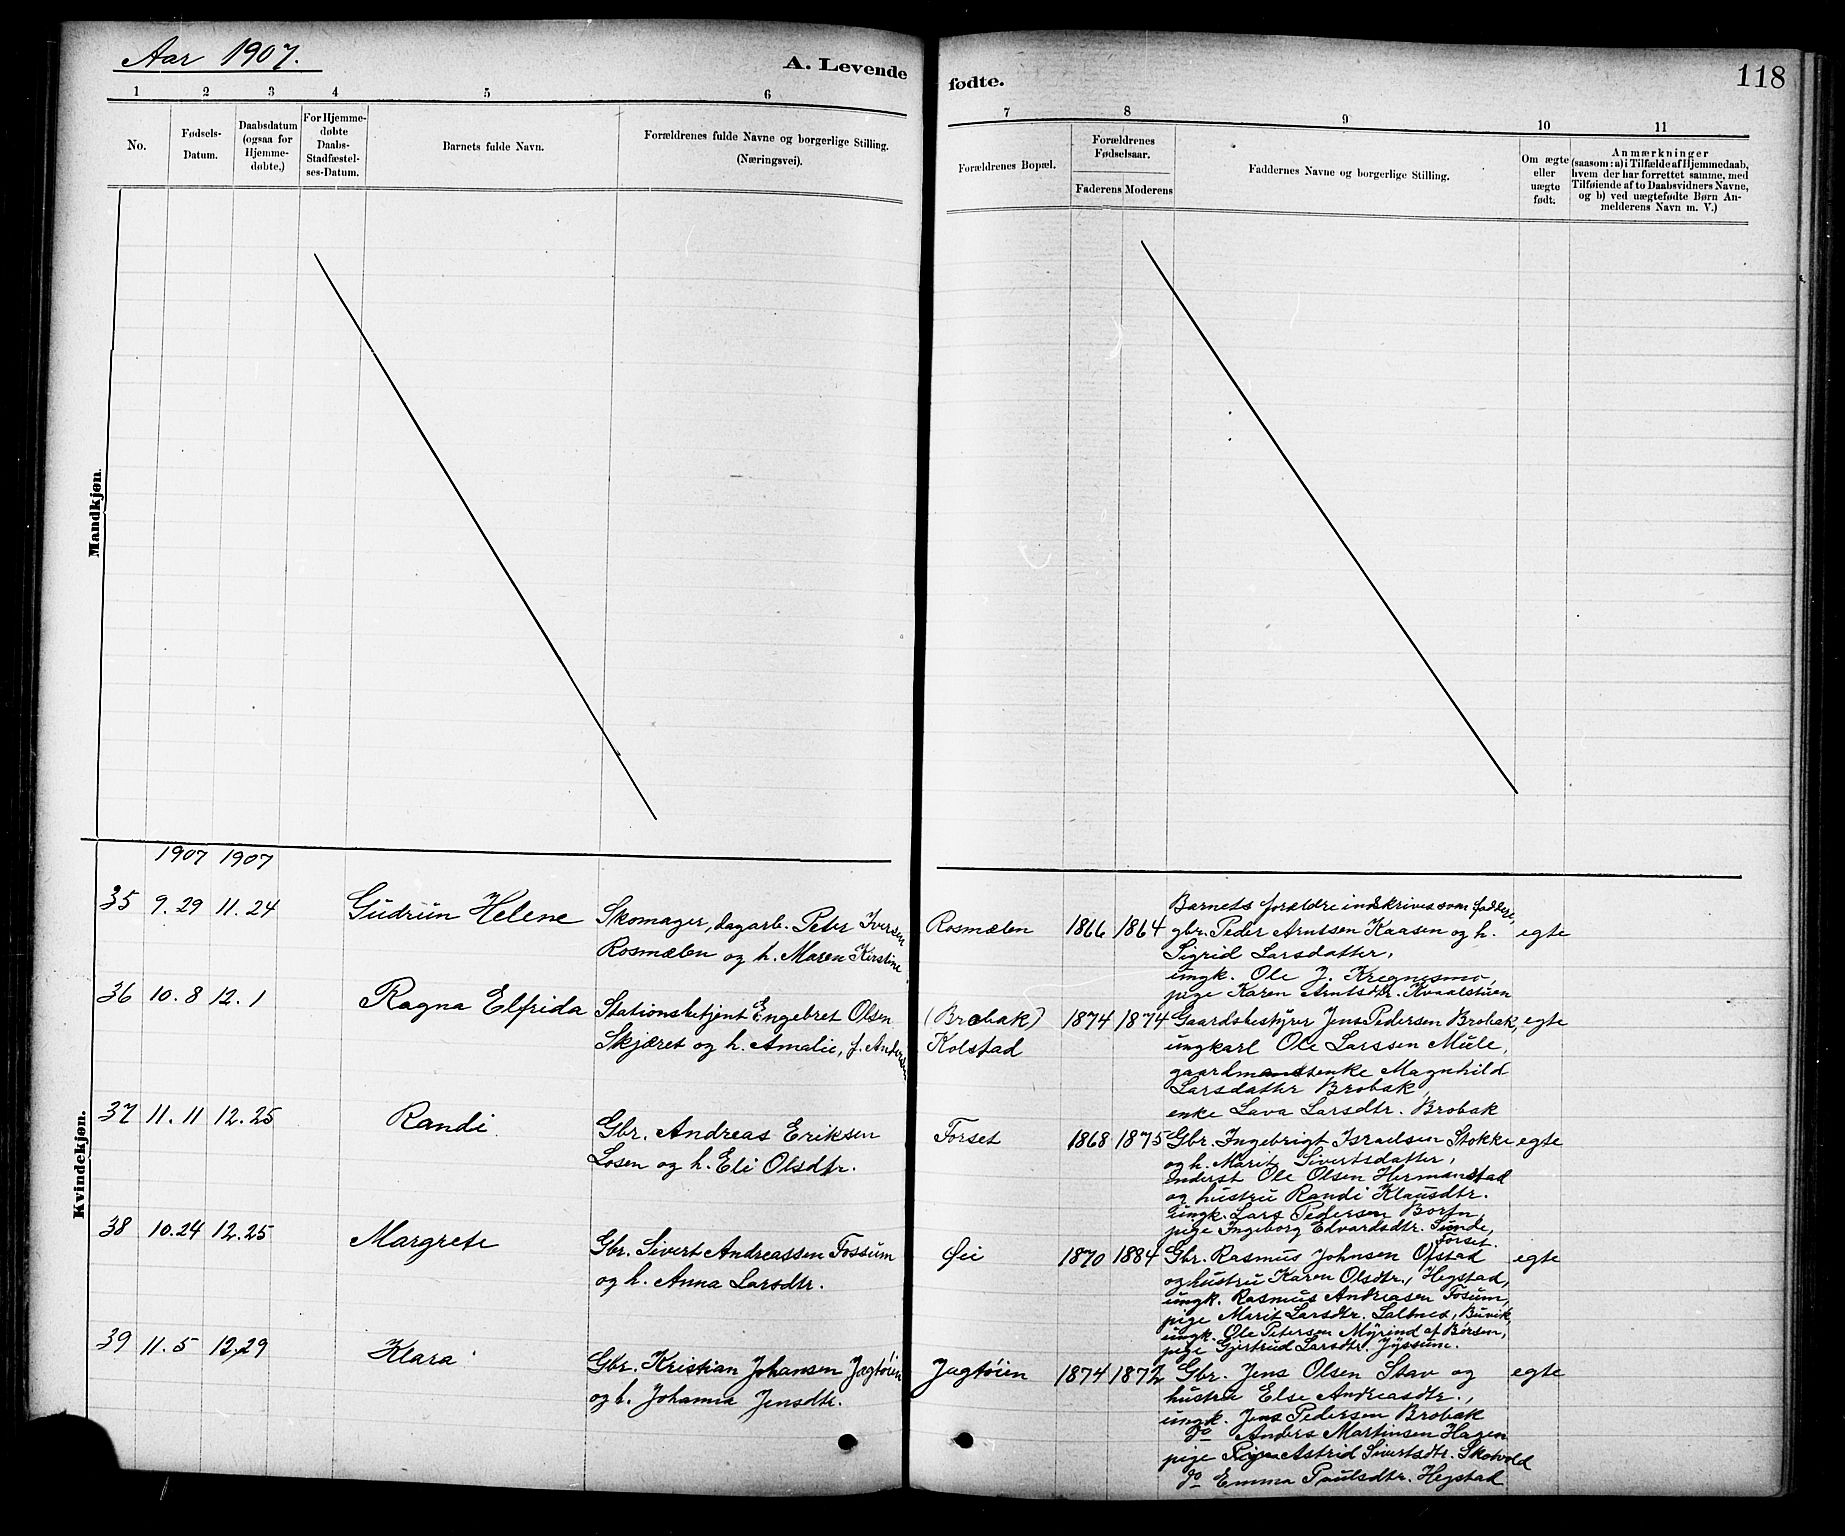 Aar 1907.
A. Levende fødte.
118
1 2 3 4 5 6 7 8 9 10 11
No.
Fødsels-
Datum.
Daabsdatum
(ogsaa for
Hjemme-
døbte.)
For Hjemme-
døbte
Daabs-
Stadfæstel-
ses-Datum.
Barnets fulde Navn.
Forældrenes fulde Navne og borgerlige Stilling.
(Næringsvei).
Forældrenes Bopæl.
Forældrenes
Fødselsaar.
Faderens Moderens
Faddernes Navne og borgerlige Stilling.
Om ægte
eller
uægte
født.
Anmærkninger
(saasom: a) i Tilfælde af Hjemmedaab,
hvem der har forrettet samme, med
Tilføiende af to Daabsvidners Navne,
og b) ved uægtefødte Børn An-
melderens Navn m. V.)
Mandkjøn.
Kvindekjøn.
1907 1907
35 9.29 11.24 Gudrun Helene
Skomager, dagarb. Peter Iversen
Rosmælen og h. Maren Kirstine
Rosmælen 1866 1864
Barnets forældre indskrives som faddere,
gbr. Peder Arntsen Kaasen og h.
Sigrid Larsdatter,
ungk. Ole J. Kregnesmo,
pige Karen Arntsdtr. Kvaalstuen
egte
36 10.8 12.1 Ragna Elfrida
Stationsbetjent Engebret Olsen
Skjæret og h. Amalie, f. Andersen
(Brobak)
Kolstad
1874 1874
Gaardsbestyrer Jens Pedersen Brobak,
ungkarl Ole Larssen Mule,
gaardmandsenke Magnhild
Larsdatter Brobak,
enke Lava Larsdtr. Brobak
egte
37 11.11 12.25 Randi
Gbr. Andreas Eriksen
Losen og h. Eli Olsdtr.
Forset 1868 1875
Gbr. Ingebrigt Israelsen Stokke
og h. Marit Sivertsdatter,
inderst Ole Olsen Hermanstad
og hustru Randi Klausdtr.
ungk. Lars Pedersen Borten,
pige Ingeborg Edvardsdtr. Sunde,
Forset.
egte
38 10.24 12.25 Margrete
Gbr. Sivert Andreassen Fossum
og h. Anna Larsdtr.
Øie 1870 1884
Gbr. Rasmus Johnsen Ofstad
og hustru Karen Olsdtr., Hegstad,
ungk. Rasmus Andreasen Fosum,
pige Marit Larsdtr. Saltnes, Buvik,
ungk. Ole Petersen Myrind af Børsen,
pige Gjertrud Larsdtr. Jyssum.
egte
39 11.5 12.29 Klara
Gbr. Kristian Johansen Jagtøien
og h. Johanna Jensdtr.
Jagtøien 1874 1872
Gbr. Jens Olsen Stav og
hustru Else Andreasdtr.,
ungk. Jens Pedersen Brobak
do Anders Martinsen Hagen
pige Astrid Sivertsdtr. Skotvold
do Emma Paulsdtr. Hegstad
egte